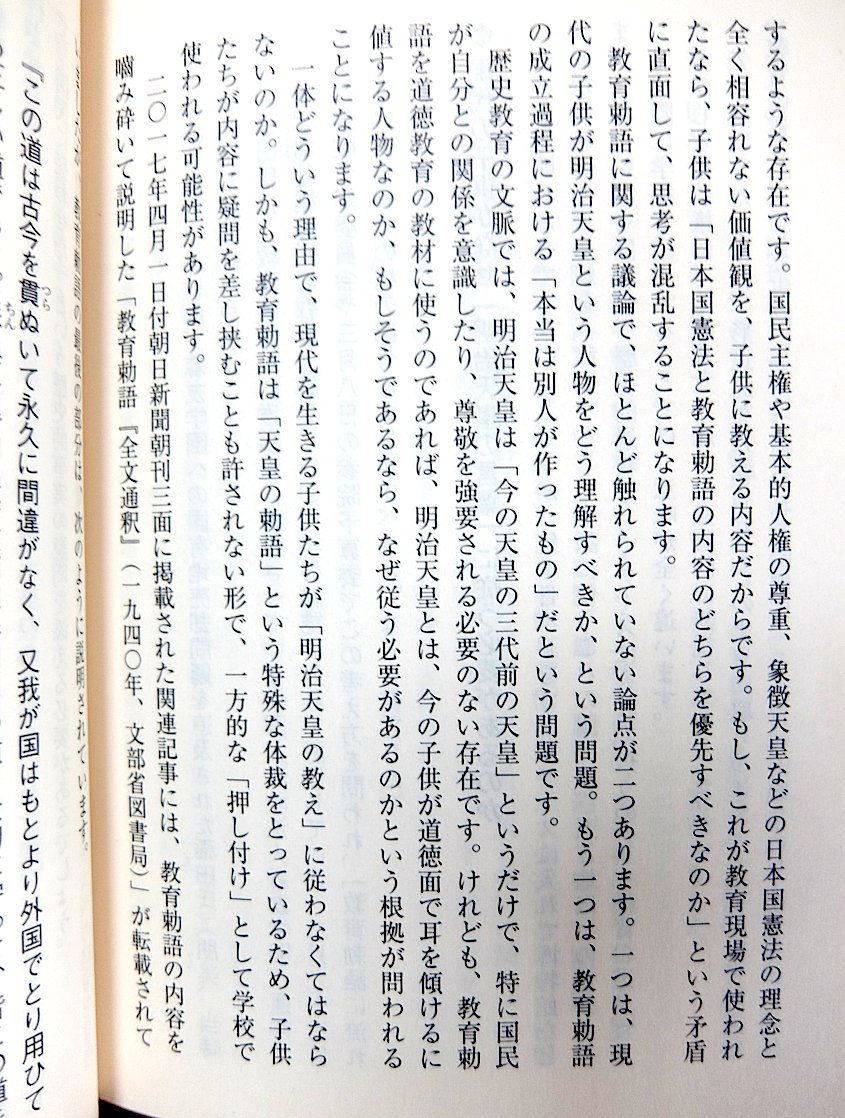 するような存在です。国民主権や基本的人権の尊重、象徴天皇などの日本国憲法の理念と
全く相容れない価値観を、子供に教える内容だからです。もし、これが教育現場で使われ
たなら、子供は「日本国憲法と教育勅語の内容のどちらを優先すべきなのか」という矛盾
に直面して、思考が混乱することになります。
教育勅語に関する議論で、ほとんど触れられていない論点が二つあります。一つは、現
代の子供が明治天皇という人物をどう理解すべきか、という問題。もう一つは、教育勅語
の成立過程における「本当は別人が作ったもの」だという問題です。
歴史教育の文脈では、明治天皇は「今の天皇の三代前の天皇」というだけで、特に国民
が自分との関係を意識したり、尊敬を強要される必要のない存在です。けれども、教育勅
語を道徳教育の教材に使うのであれば、明治天皇とは、今の子供が道徳面で耳を傾けるに
値する人物なのか、もしそうであるなら、なぜ従う必要があるのかという根拠が問われる
ことになります。
一体どういう理由で、現代を生きる子供たちが「明治天皇の教え」に従わなくてはなら
ないのか。しかも、教育勅語は「天皇の勅語」という特殊な体裁をとっているため、子供
たちが内容に疑問を差し挟むことも許されない形で、一方的な「押し付け」として学校で
使われる可能性があります。
二〇一七年四月一日付朝日新聞朝刊三面に掲載された関連記事には、教育勅語の内容を
嚙み砕いて説明した「教育勅語『全文通釈』(一九四〇年、文部省図書局)」が転載されて
教育勅語の最後の部分は、次のように説明されています。
『この道は古今を貫ぬいて永久に間違がなく、又我が国はもとより外国でとり用ひて